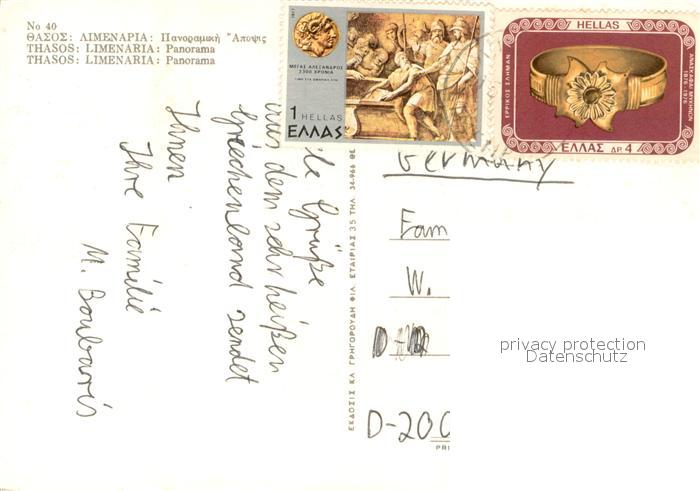 No 40
ΘΑΣΟΣ: ΛΙΜΕΝΑΡΙΑ: Πανοραμικὴ Ἄποψις
THASOS: LIMENARIA: Panorama
THASOS: LIMENARIA: Panorama
ΜΕΓΑΣ ΑΛΕΞΑΝΔΡΟΣ
2300 ΧΡΟΝΙΑ
1 HELLAS
ΕΛΛΑΣ
HELLAS
ΕΡΡΙΚΟΣ ΣΛΗΜΑΝ
ΑΝΑΣΚΑΦΑΙ ΜΥΚΗΝΩΝ
1876 - 1976
ΕΛΛΑΣ ΔΡ. 4
le Grüße
aus dem sehr heißen
Griechenland sendet
Ihnen
Ihre Familie
M. Boubaris
ΕΚΔΟΣΙΣ ΚΛ ΓΡΗΓΟΡΟΥΔΗ ΦΙΛ. ΕΤΑΙΡΙΑΣ 35 ΤΗΛ. 34-966 ΘΕ
Germany
Fam
W.
D-
D-200
PRI
privacy protection
Datenschutz